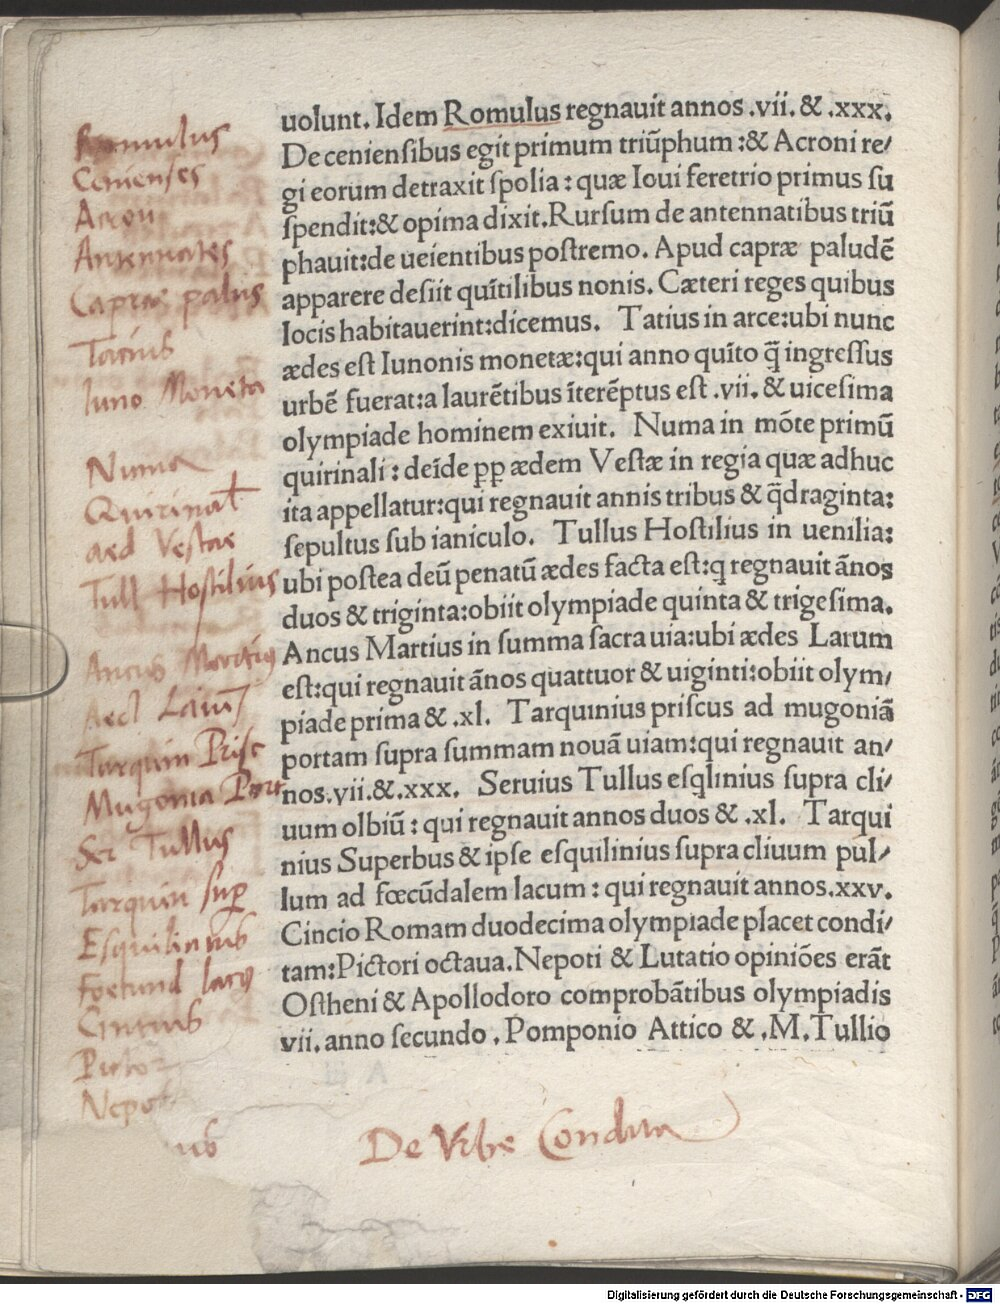 uolunt. Idem Romulus regnauit annos .vii. & .xxx.
De cenienſibus egit primum triũphum :& Acroni re/
gi eorum detraxit ſpolia : quæ Ioui feretrio primus ſu
ſpendit:& opima dixit.Rurſum de antennatibus triũ
phauit:de ueientibus poſtremo. Apud capræ paludẽ
apparere deſiit quĩtilibus nonis. Cæteri reges quibus
locis habitauerint:dicemus. Tatius in arce:ubi nunc
ædes eſt Iunonis monetæ:qui anno quĩto q̃ ingreſſus
urbẽ fuerat:a laurẽtibus ĩterẽptus eſt .vii. & uiceſima
olympiade hominem exiuit. Numa in mõte primũ
quirinali : deĩde ꝓꝑ ædem Veſtæ in regia quæ adhuc
ita appellatur:qui regnauit annis tribus & q̃draginta:
ſepultus ſub ianiculo. Tullus Hoſtilius in uenilia:
ubi poſtea deũ penatũ ædes facta eſt:q regnauit ãnos
duos & triginta:obiit olympiade quinta & trigeſima.
Ancus Martius in ſumma ſacra uia:ubi ædes Larum
eſt:qui regnauit ãnos quattuor & uiginti:obiit olym/
piade prima & .xl. Tarquinius priſcus ad mugoniã
portam ſupra ſummam nouã uiam:qui regnauit an/
nos.vii.&.xxx. Seruius Tullus eſqlinius ſupra cli/
uum olbiũ : qui regnauit annos duos & .xl. Tarqui
nius Superbus & ipſe eſquilinius ſupra cliuum pul/
lum ad fœcũdalem lacum : qui regnauit annos.xxv.
Cincio Romam duodecima olympiade placet condi/
tam:Pictori octaua.Nepoti & Lutatio opiniões erãt
Oſtheni & Apollodoro comprobãtibus olympiadis
vii. anno ſecundo . Pomponio Attico & .M.Tullio
Romulus
Cenienses
Acron
Antennates
Caprae palus
Tatius
Iuno Moneta
Numa
Quirinal
aed Vestae
Tull Hostilius
Ancus Martius
Aed Larum
Tarquin Prisc
Mugonia Port
Ser Tullus
Tarquin sup
Esquilinus
Foecund lacus
Cintius
Pictor
Nepot
De Vrbe Condita
Digitalisierung gefördert durch die Deutsche Forschungsgemeinschaft - DFG